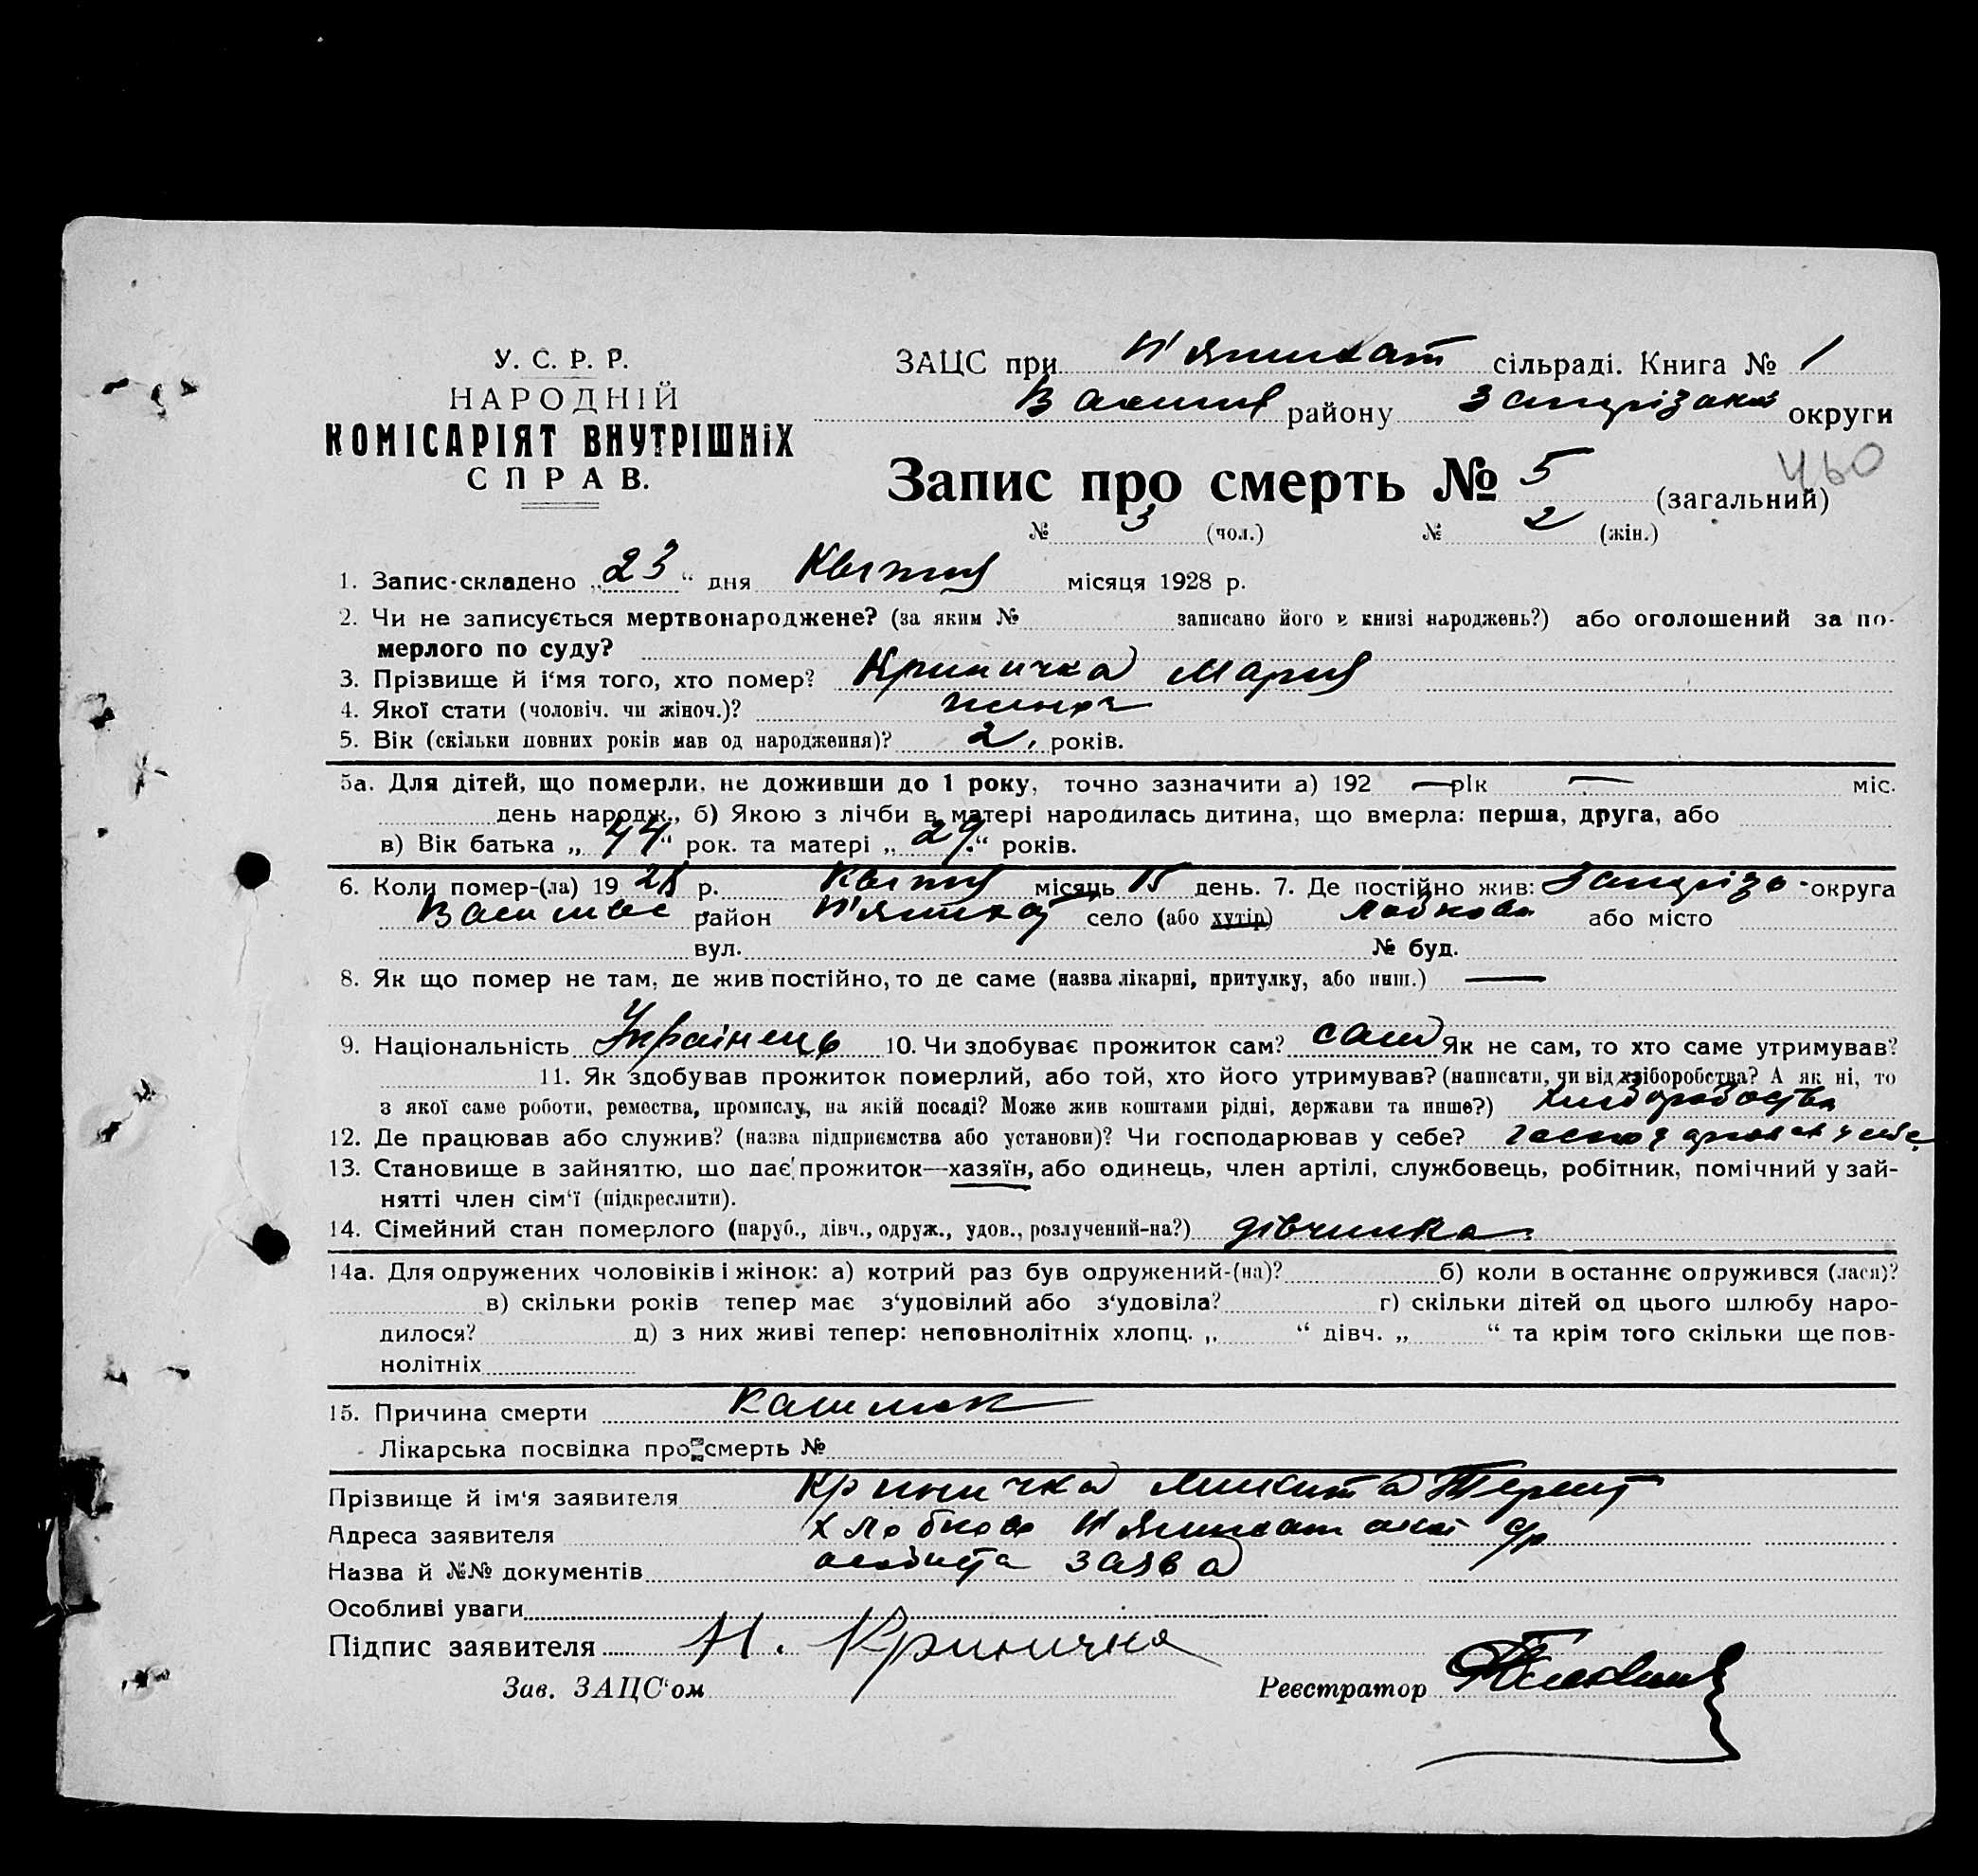 У. С. Р. Р.
НАРОДНІЙ
КОМІСАРІЯТ ВНУТРІШНІХ
СПРАВ.
ЗАЦС при П'ятихат сільраді. Книга № 1
району округи
Запис про смерть № 5 (загальний)
460
№ 3 (чол.) № 2 (жін.)
1. Запис складено „23“ дня Квітня місяця 1928 р.
2. Чи не записується мертвонароджене? (за яким № записано його в книзі народжень?) або оголошений за по-
мерлого по суду?
3. Прізвище й і'мя того, хто помер? Криничка Мария
4. Якої стати (чоловіч. чи жіноч.)? жиноч
5. Вік (скільки повних років мав од народження)? 2. років.
5а. Для дітей, що померли, не доживши до 1 року, точно зазначити а) 192 — рік — міс.
день народж., б) Якою з лічби в матері народилась дитина, що вмерла: перша, друга, або
в) Вік батька „44“ рок. та матері „29.“ років.
6. Коли помер-(ла) 1928 р. Квітня місяць 15 день. 7. Де постійно жив: округа
район П'ятихат село (або хутір) або місто
вул. № буд.
8. Як що помер не там, де жив постійно, то де саме (назва лікарні, притулку, або инш.) —
9. Національність Українець 10. Чи здобуває прожиток сам? сам Як не сам, то хто саме утримував?
11. Як здобував прожиток померлий, або той, хто його утримував? (написати, чи від хліборобства? А як ні, то
з якої саме роботи, ремества, промислу, на якій посаді? Може жив коштами рідні, держави та инше?)
12. Де працював або служив? (назва підприємства або установи)? Чи господарював у себе?
13. Становище в зайняттю, що дає прожиток—хазяїн, або одинець, член артілі, службовець, робітник, помічний у зай-
нятті член сім'ї (підкреслити).
14. Сімейний стан померлого (паруб., дівч., одруж., удов., розлучений-на?) дівчинка.
14а. Для одружених чоловіків і жінок: а) котрий раз був одружений-(на)? б) коли в останнє одружився (лася)?
в) скільки років тепер має з'удовілий або з'удовіла? г) скільки дітей од цього шлюбу наро-
дилося? д) з них живі тепер: неповнолітніх хлопц. „ “ дівч. „ “ та крім того скільки ще пов-
нолітніх
15. Причина смерти Кашлюк
Лікарська посвідка про смерть №
Прізвище й ім'я заявителя Криничка Микита
Адреса заявителя х П'ятихатської с/р
Назва й №№ документів особиста заява
Особливі уваги
Підпис заявителя Н. Криничка
Зав. ЗАЦС'ом Реєстратор